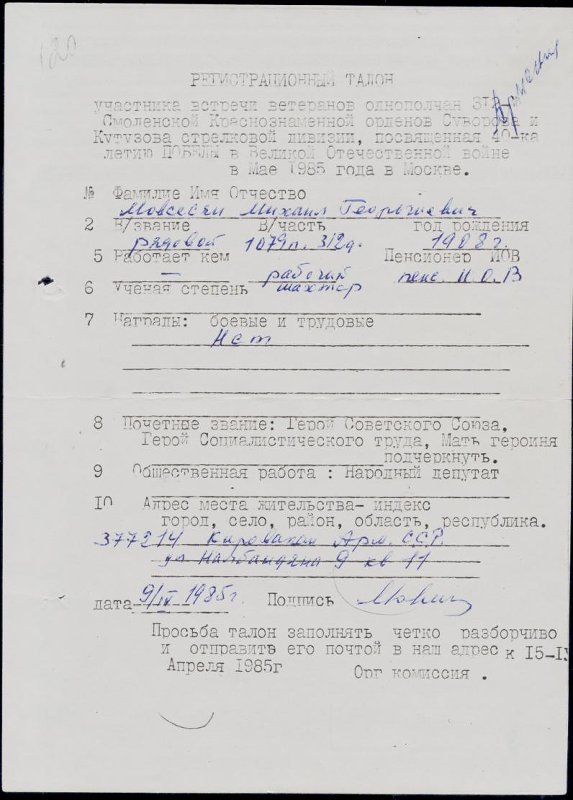 120
Армения
РЕГИСТРАЦИОННЫЙ ТАЛОН
участника встречи ветеранов однополчан 312-
Смоленской Краснознаменной орденов Суворова и
Кутузова стрелковой дивизии, посвященная 40-ка
летию ПОБЕДЫ в Великой Отечественной войне
в Мае 1985 года в Москве.
№ Фамилие Имя Отчество
Мовсесян Михаил Георгиевич
2 В/звание В/часть год рождения
рядовой 1079п. 312д. 1908г.
5 Работает кем Пенсионер ИОВ
— рабочий пенс. И.О.В
6 Ученая степень шахтер
7 Награды: боевые и трудовые
Нет
8 Почетные звание: Герой Советского Союза,
Герой Социалистического труда, Мать героиня
подчеркнуть.
9 Общественная работа : Народный депутат
10 Адрес места жительства- индекс
город, село, район, область, республика.
377214 Кировакан Арм. ССР.
ул Налбандяна 9 кв 11
дата 9/IV 1985г. Подпись
Просьба талон заполнять четко разборчиво
и отправить его почтой в наш адрес к 15-
Апреля 1985г Орг комиссия .